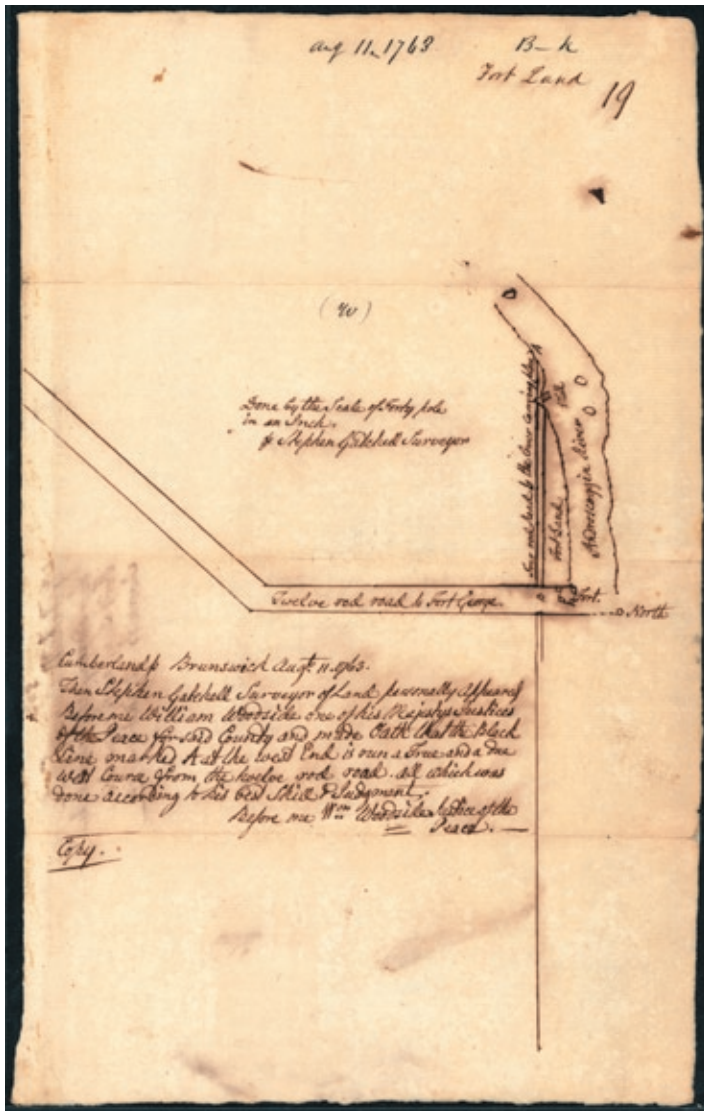 Aug 11 1763
B-k
Fort Land
19
Done by the Scale of Forty pole
in an Inch.
Stephen Gatchell Surveyor
Fort Land
Androscoggin River
Twelve rod road to Fort George.
Fort.
North
Cumberland ss Brunswick Augt 11. 1763.
Then Stephen Gatchell Surveyor of Land personally Appeared
Before me William Woodside one of his Majestys Justices
of the Peace for said County and made Oath that the Black
Line marked A at the west End is run a True and a due
West Course from the twelve rod road all which was
done according to his best Skill & Judgment.
Before me Wm Woodside Justice of the
Peace.
Copy.